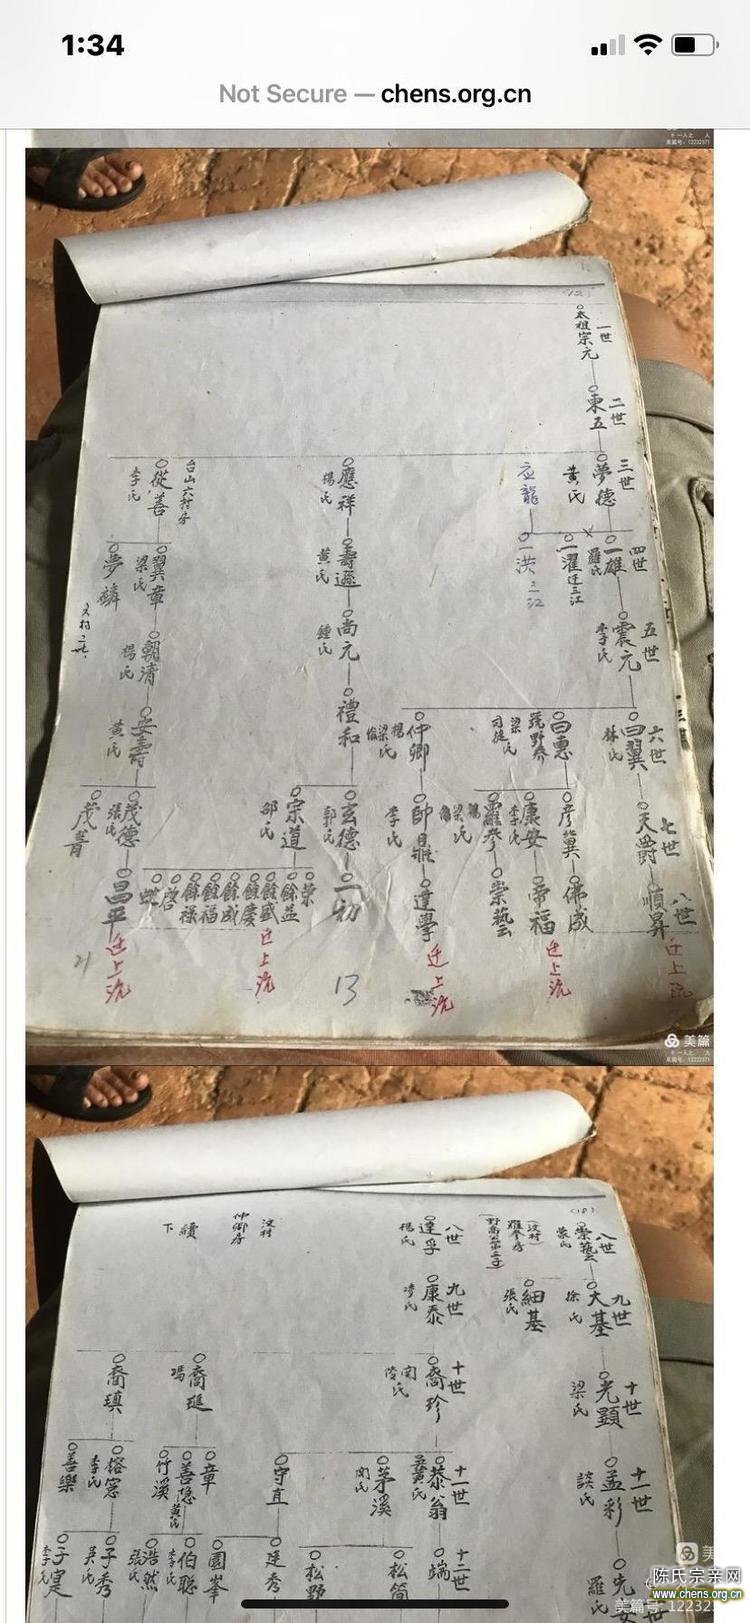 1:34
Not Secure — chens.org.cn
美篇号：12232371
(12)
一世
太祖宗元
二世
東五
三世
夢德
黃氏
应龍
應祥
楊氏
台山六村房
從善
李氏
四世
一雄
羅氏
一濯
迁三江
一洪
三江
壽遜
黃氏
翼章
梁氏
夢麟
五世
震元
李氏
尚元
鍾氏
朝清
楊氏
六世
曰翼
林氏
曰惠
梁氏
仲卿
楊
梁氏
禮和
安壽
黃氏
七世
天爵
彦冀
康安
李氏
羅參
楊
梁氏
帥鼎
李氏
玄德
郭氏
宗道
邵氏
茂德
張氏
茂菁
八世
順昇
佛成
帝福
崇藝
達學
一初
榮
餘益
餘盛
餘慶
餘成
餘福
餘禄
啓
昌平
迁上沅
迁上沅
迁上沅
迁上沅
迁上沅
13
21
美篇
美篇号：12232371
(18)
八世
崇藝
(沒村)
雁參房
八世
達孚
楊氏
沒村
仲卿房
續
下
九世
大基
徐氏
細基
張氏
九世
康泰
李氏
十世
光顯
梁氏
十世
裔珍
関氏
裔璡
馮
裔瑱
十一世
孟彩
談氏
十一世
泰翁
黃氏
茅溪
関氏
守直
章
善隐
黃氏
竹溪
榕窓
李氏
善樂
羅氏
十二世
端
松筠
松野
達秀
圓峯
伯聡
李氏
浩然
張氏
子秀
吴氏
子寔
李氏
美
陈氏宗亲网
www.chens.org.cn
美篇号：12232